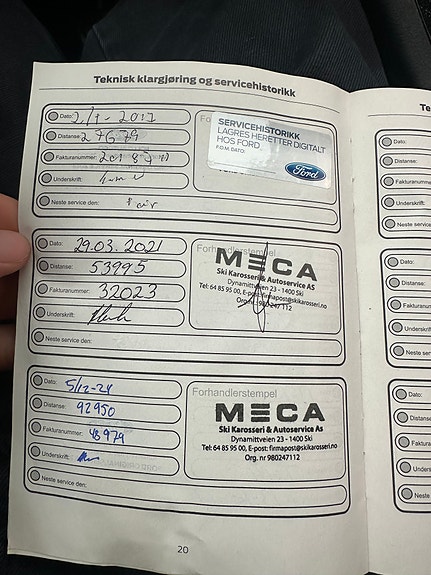 Teknisk klargjøring og servicehistorikk
Te
Dato:
Distanse:
Fakturanummer:
Underskrift:
Neste service den:
SERVICEHISTORIKK
LAGRES HERETTER DIGITALT
HOS FORD
F.O.M. DATO:
Ford
Dato: 29.03.2021
Distanse: 53995
Fakturanummer: 32023
Underskrift:
Neste service den:
Forhandlerstempel
MECA
Ski Karosseri & Autoservice AS
Dynamittveien 23 - 1400 Ski
Tel: 64 85 95 00, E-post: firmapost@skikarosseri.no
Org. nr 980247112
Dato: 5/12-24
Distanse: 92950
Fakturanummer: 48979
Underskrift:
Neste service den:
Forhandlerstempel
MECA
Ski Karosseri & Autoservice As
Dynamittveien 23 - 1400 Ski
Tel: 64 85 95 00, E-post: firmapost@skikarosseri.no
Org. nr 980247112
20
Dato:
Distanse:
Fakturanummer:
Underskrift:
Neste service
Dato:
Distanse:
Fakturanum
Underskrift:
Neste servi
Dato:
Distanse:
Fakturan
Underskri
Neste se